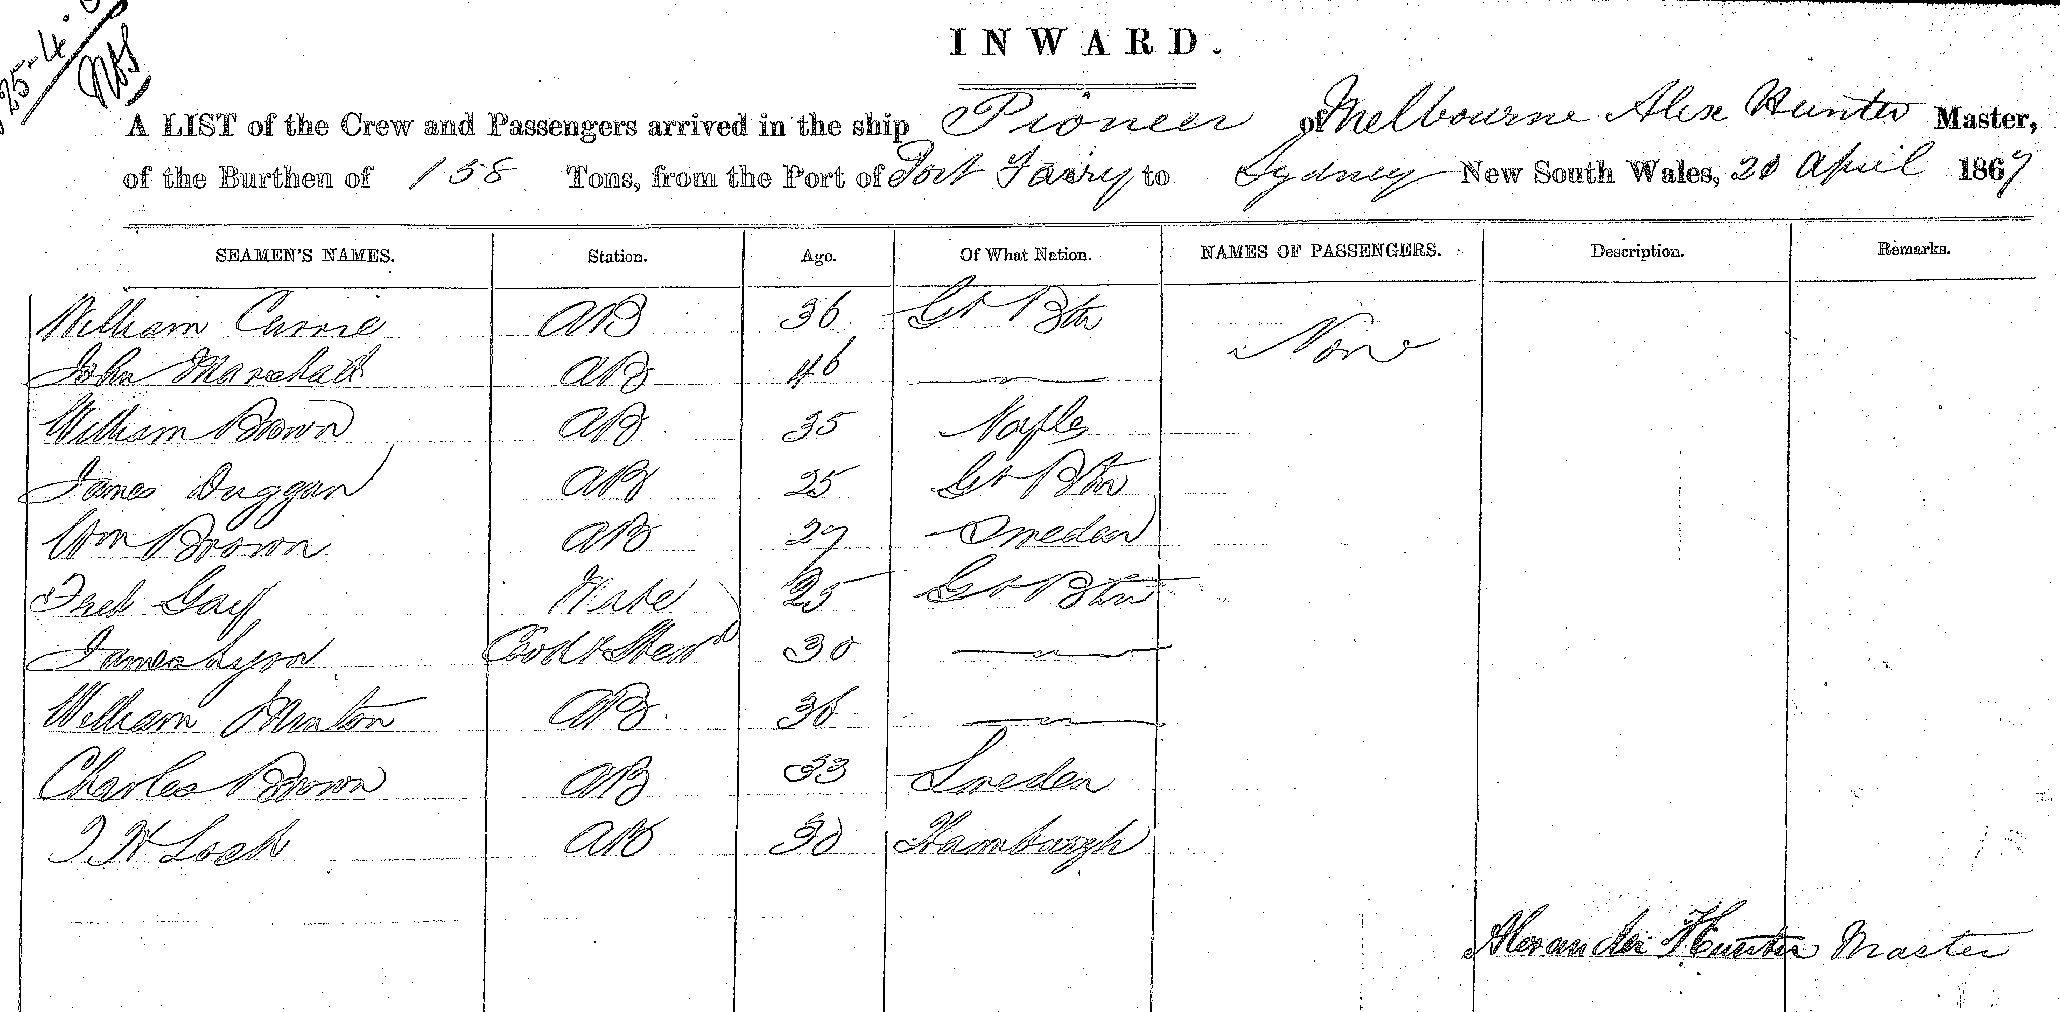 25-4
INWARD.
A LIST of the Crew and Passengers arrived in the ship Pioneer of Melbourne Alex Hunter Master,
of the Burthen of 158 Tons, from the Port of Port Fairy to Sydney New South Wales, 20 April 1867
SEAMEN'S NAMES. Station. Age. Of What Nation. NAMES OF PASSENGERS. Description. Remarks.
William Currie AB 36 Gt Btn None
John Marshall AB 46
William Brown AB 35 Naples
James Duggan AB 25 Gt Btn
Wm Brown AB 27 Sweden
Fred Gay Mate 25 Gt Btn
James Lyon Cook & Stewd 30
William Minton AB 36
Charles Brown AB 33 Sweden
Lock AB 30 Hamburgh
Alexander Hunter Master